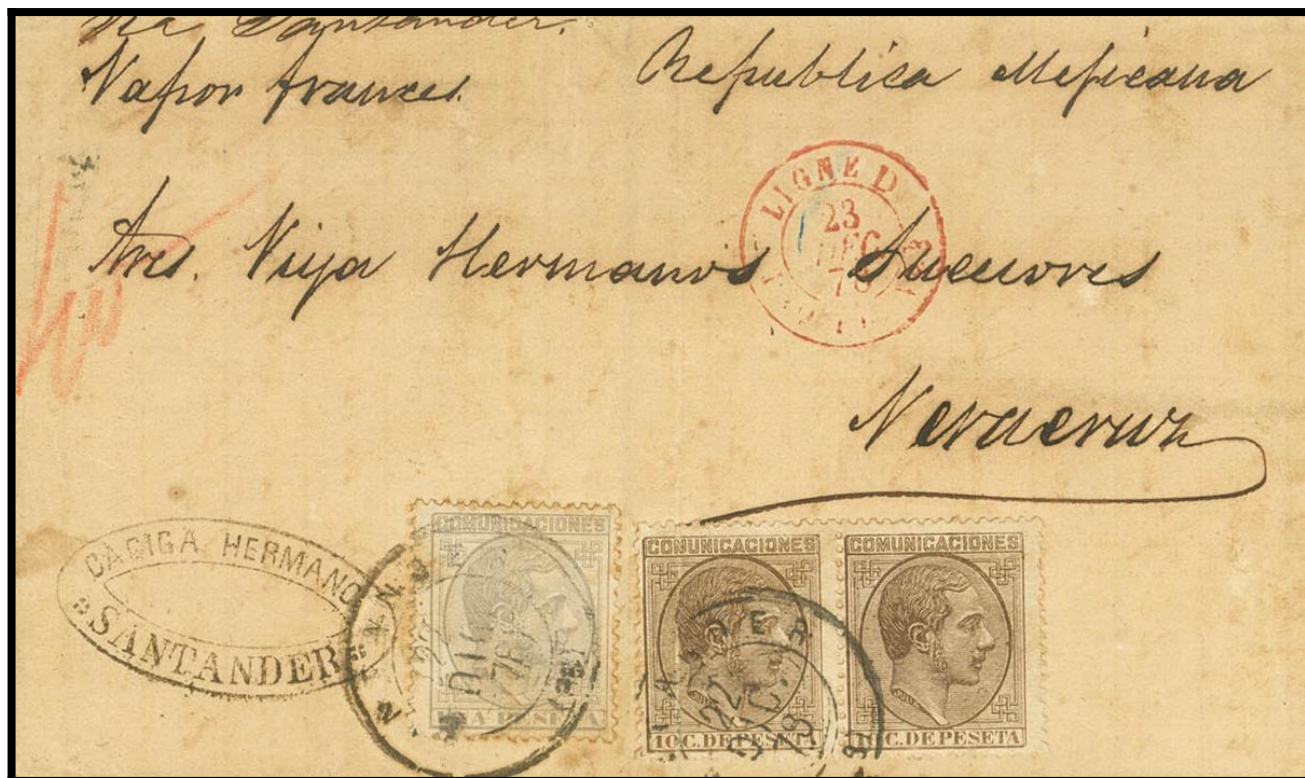 Via Santander.
Vapor frances
Republica Mejicana
LIGNE D
23
DEC
78
Sres. Viya Hermanos Sucesores
Veracruz
CAGIGA HERMANO
SANTANDER
COMUNICACIONES
UNA PESETA
22
DIC
78
COMUNICACIONES
10 C. DE PESETA
COMUNICACIONES
C. DE PESETA
22
DIC.
78